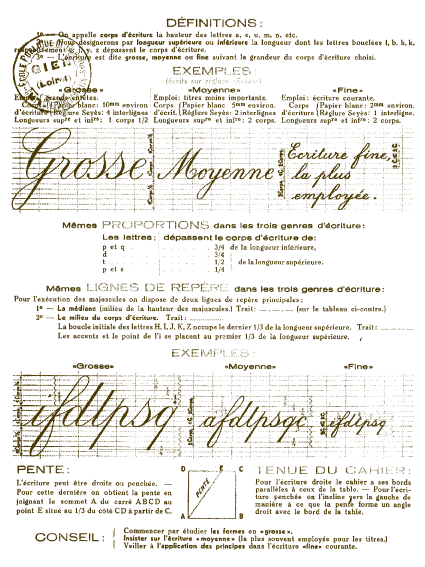 DÉFINITIONS:
1º — On appelle corps d'écriture la hauteur des lettres a, e, u, m, n, etc.
2º — Nous désignerons par longueur supérieure ou inférieure la longueur dont les lettres bouclées l, b, h, k,
y, z dépassent le corps d'écriture.
3º — L'écriture est dite grosse, moyenne ou fine suivant la grandeur du corps d'écriture choisi.
EXEMPLES:
(écrits sur réglure «Seyès»)
«Grosse»
Emploi: grands entêtes.
Corps (Papier blanc: 10mm environ
d'écriture (Réglure Seyès: 4 interlignes
Longueurs supre et infre: 1 corps 1/2
«Moyenne»
Emploi: titres moins importants.
Corps (Papier blanc: 5mm environ.
d'écrit.(Réglure Seyès: 2 interlignes
Longueurs supre et infre: 2 corps.
«Fine»
Emploi: écriture courante.
Corps (Papier blanc: 2mm environ
d'écriture (Réglure Seyès: 1 interligne.
Longueurs supre et infre: 2 corps.
Grosse
Moyenne
Écriture fine,
la plus
employée.
Mêmes PROPORTIONS dans les trois genres d'écriture:
Les lettres; dépassent le corps d'écriture de:
p et q 3/4 de la longueur inférieure,
d 3/4
t 1/2 de la longueur supérieure.
p et s 1/4
Mêmes LIGNES DE REPÈRE dans les trois genres d'écriture:
Pour l'exécution des majuscules on dispose de deux lignes de repère principales:
1º — La médiane (milieu de la hauteur des majuscules.) Trait: (sur le tableau ci-contre.)
2º — Le milieu du corps d'écriture. Trait:
La boucle initiale des lettres H, I, J, K, Z occupe le dernier 1/3 de la longueur supérieure. Trait:
Les accents et le point de l'i se placent au premier 1/3 de la longueur supérieure.
EXEMPLES:
«Grosse» «Moyenne» «Fine»
ifdtpsq
afdtpsqc
ifdtpsq
PENTE:
L'écriture peut être droite ou penchée. —
Pour cette dernière on obtient la pente en
joignant le sommet A du carré ABCD au
point E situé au 1/3 du côté CD à partir de C.
D E C
PENTE
A B
TENUE DU CAHIER:
Pour l'écriture droite le cahier a ses bords
parallèles à ceux de la table. — Pour l'écri-
ture penchée on l'incline vers la gauche de
manière à ce que la pente forme un angle
droit avec le bord de la table.
CONSEIL:
Commencer par étudier les formes en «grosse».
Insister sur l'écriture «moyenne» (la plus souvent employée pour les titres.)
Veiller à l'application des principes dans l'écriture «fine» courante.